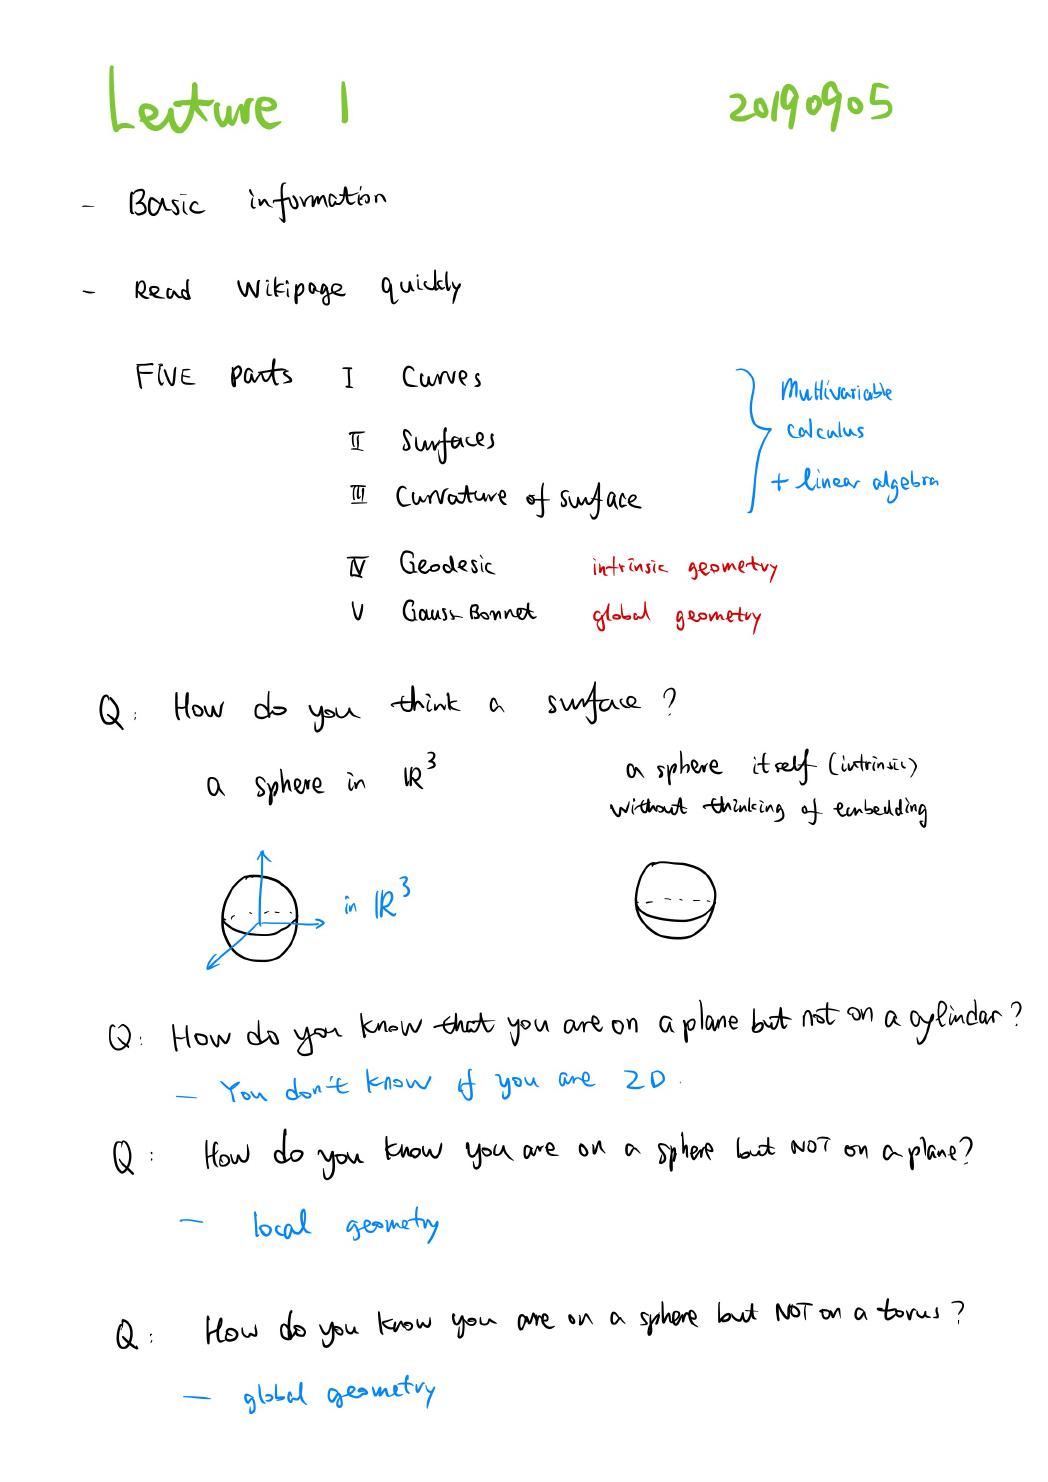 Lecture 1 20190905
- Basic information
- Read Wikipage quickly
FIVE parts I Curves
II Surfaces
III Curvature of surface
Multivariable
calculus
+ linear algebra
IV Geodesic intrinsic geometry
V Gauss-Bonnet global geometry
Q: How do you think a surface?
a sphere in ℝ³
a sphere itself (intrinsic)
without thinking of embedding
in ℝ³
Q: How do you know that you are on a plane but not on a cylindar?
- You don't know if you are 2D.
Q: How do you know you are on a sphere but NOT on a plane?
- local geometry
Q: How do you know you are on a sphere but NOT on a torus?
- global geometry